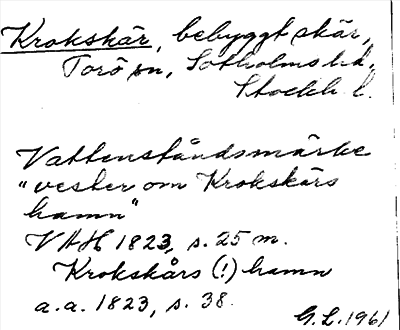 Krokskär, bebyggt skär,
Torö sn, Sotholms hd,
Stockh. l.
Vattenståndsmärke
"vester om Krokskärs
hamn"
VAH 1823, s. 25 m.
Krokskårs (!) hamn
a.a. 1823, s. 38.
G.L. 1961